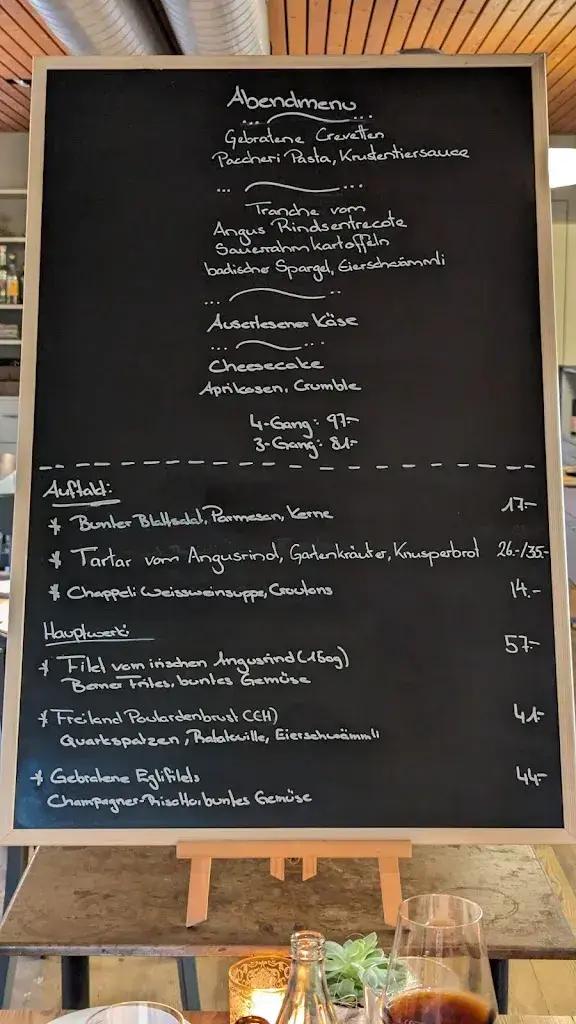 Abendmenu
Gebratene Crevetten
Paccheri Pasta, Krustentiersauce
Tranche vom
Angus Rindsentrecote
Sauerrahmkartoffeln
badischer Spargel, Eierschwämmli
Auserlesener Käse
Cheesecake
Aprikosen, Crumble
4-Gang: 97.-
3-Gang: 81.-
Auftakt:
* Bunter Blattsalat, Parmesan, Kerne 17.-
* Tartar vom Angusrind, Gartenkräuter, Knusperbrot 26.-/35.-
* Chappeli Weissweinsuppe, Croutons 14.-
Hauptwerk:
* Filet vom irischen Angusrind (150g) 57.-
Berner Frites, buntes Gemüse
* Freiland Poulardenbrust (CH) 41.-
Quarkspatzen, Ratatouille, Eierschwämmli
* Gebratene Eglifilets 44.-
Champagner-Risotto, buntes Gemüse